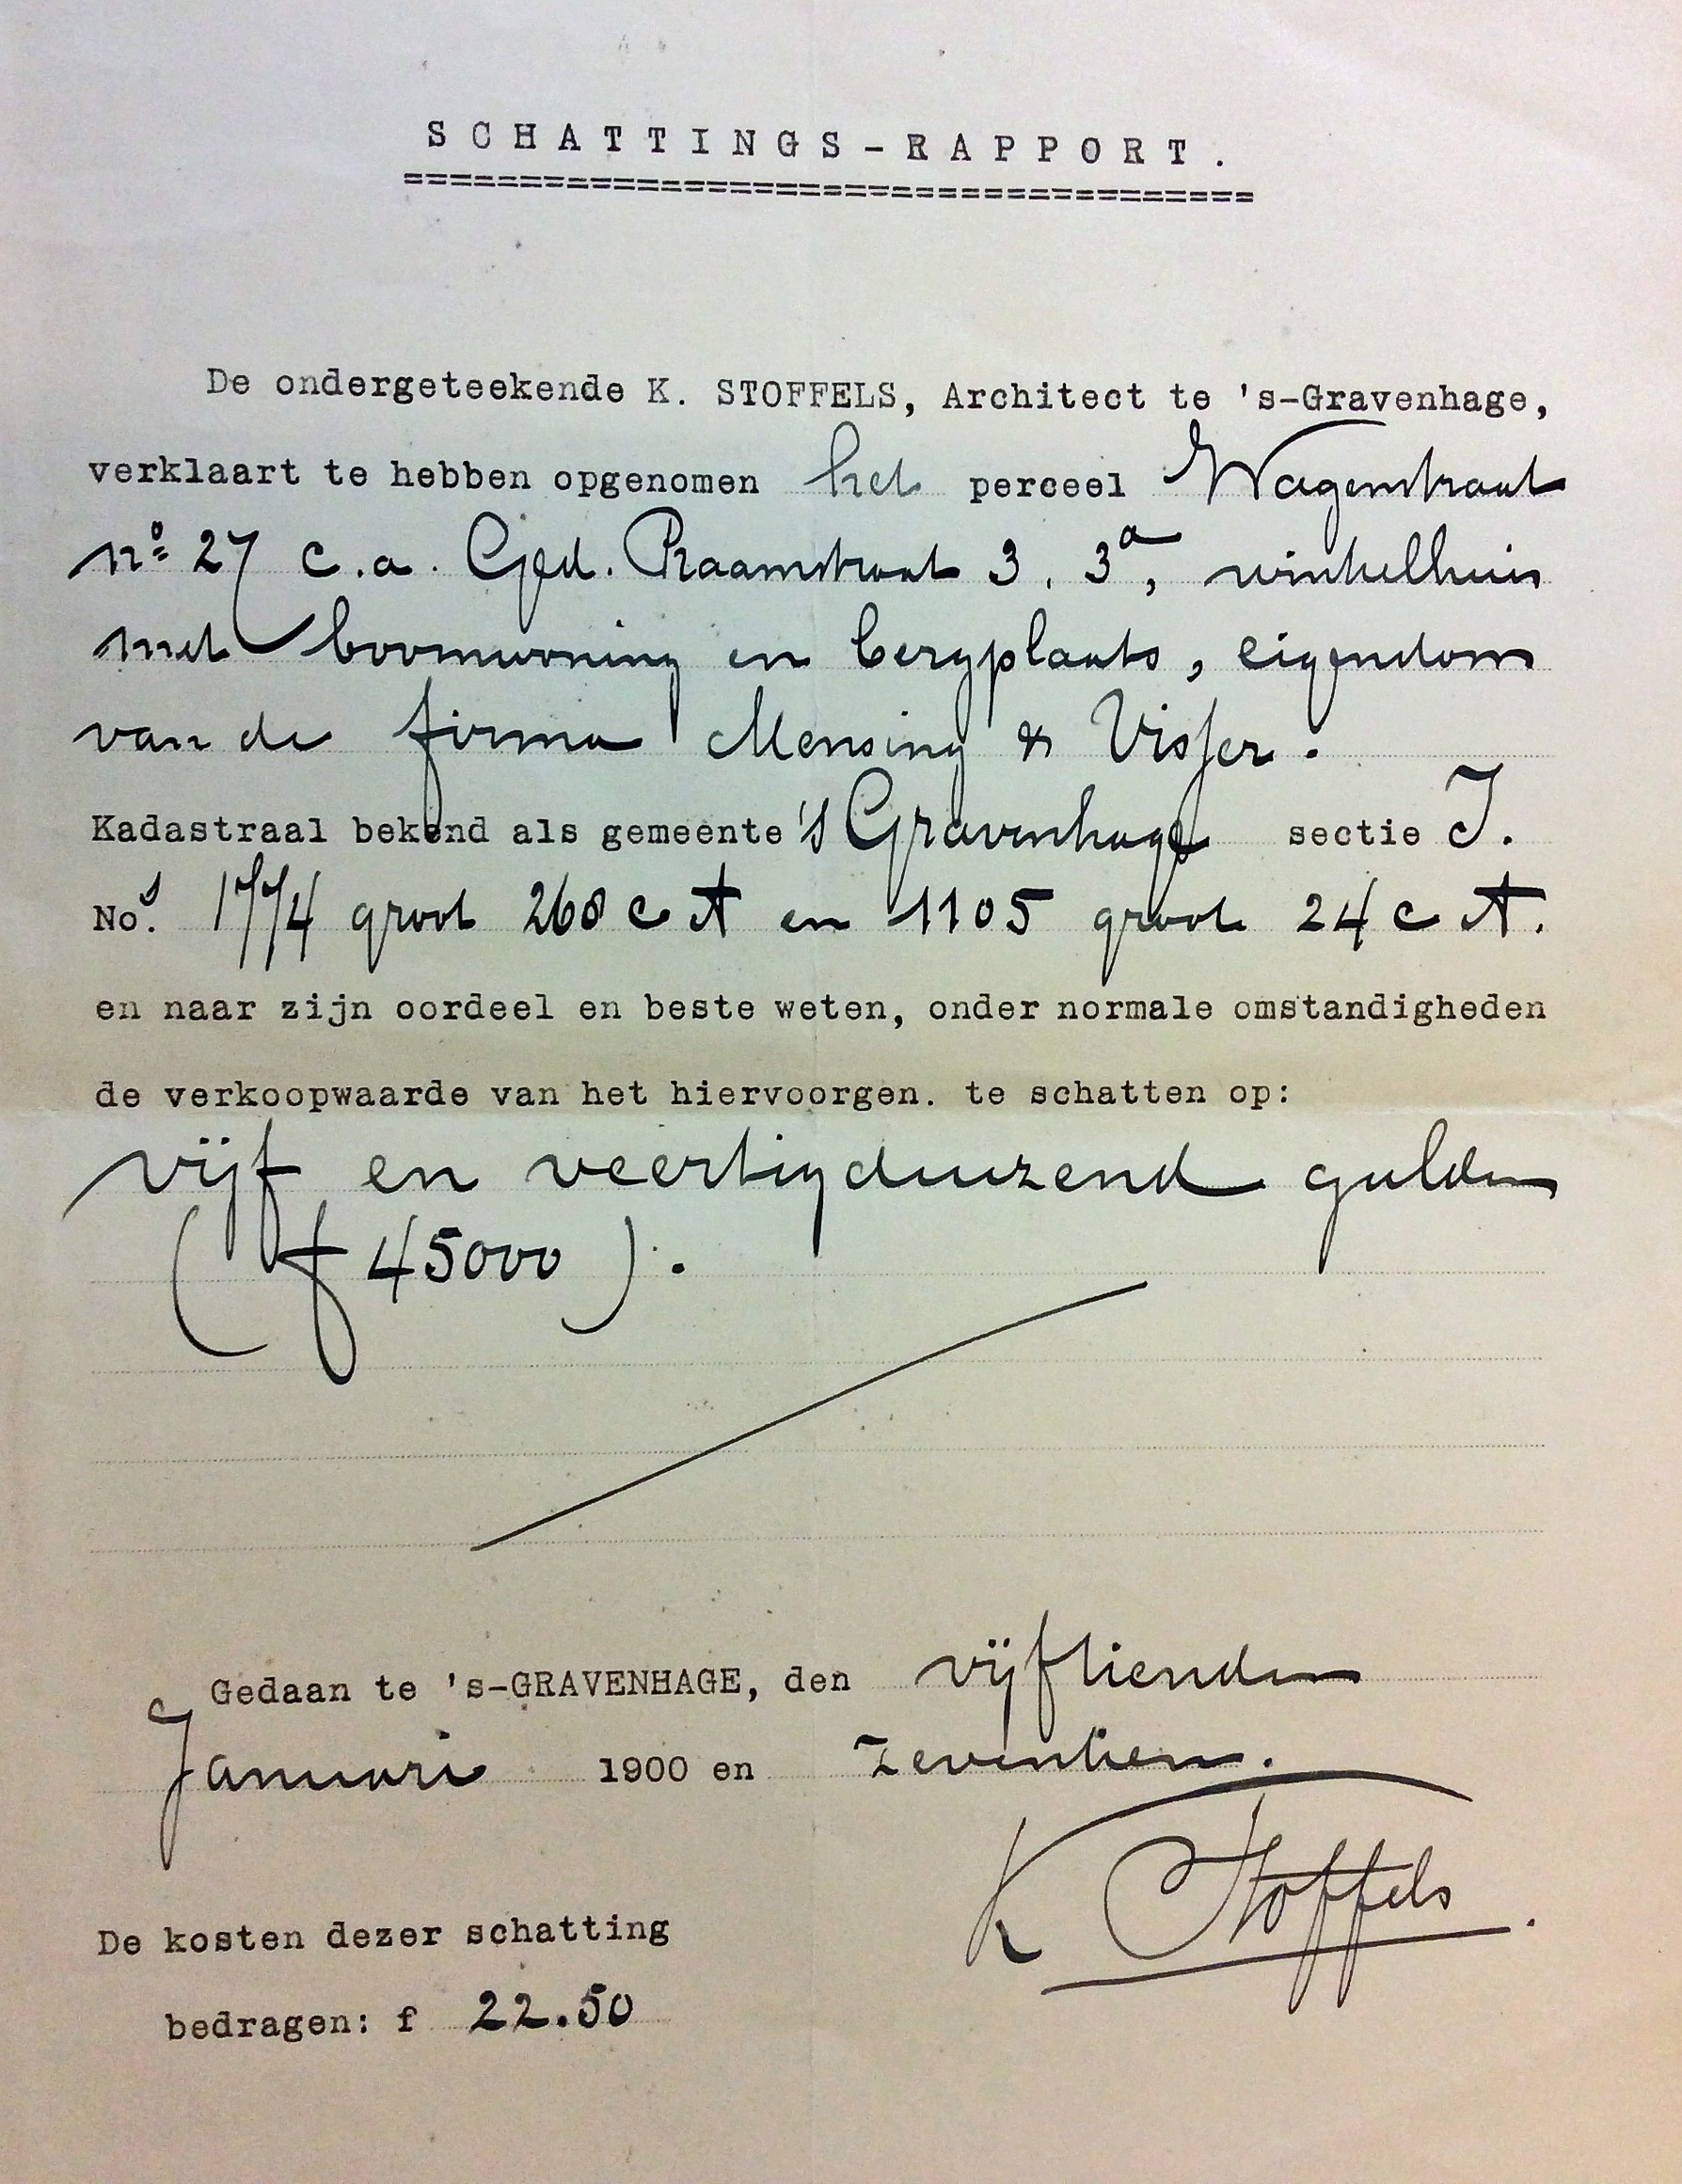 SCHATTINGS-RAPPORT.
De ondergeteekende K. STOFFELS, Architect te 's-Gravenhage,
verklaart te hebben opgenomen het perceel Wagenstraat
no. 27 c.a. Ged. Raamstraat 3, 3a, winkelhuis
met bovenwoning en bergplaats, eigendom
van de firma Mensing & Visser.
Kadastraal bekend als gemeente 's Gravenhage sectie J.
Nos. 1774 groot 268 cA en 1105 groot 24 cA.
en naar zijn oordeel en beste weten, onder normale omstandigheden
de verkoopwaarde van het hiervoorgen. te schatten op:
vijf en veertigduizend gulden
(f 45000).
Gedaan te 's-GRAVENHAGE, den vijftienden
Januari 1900 en zeventien.
K Stoffels.
De kosten dezer schatting
bedragen: f 22.50